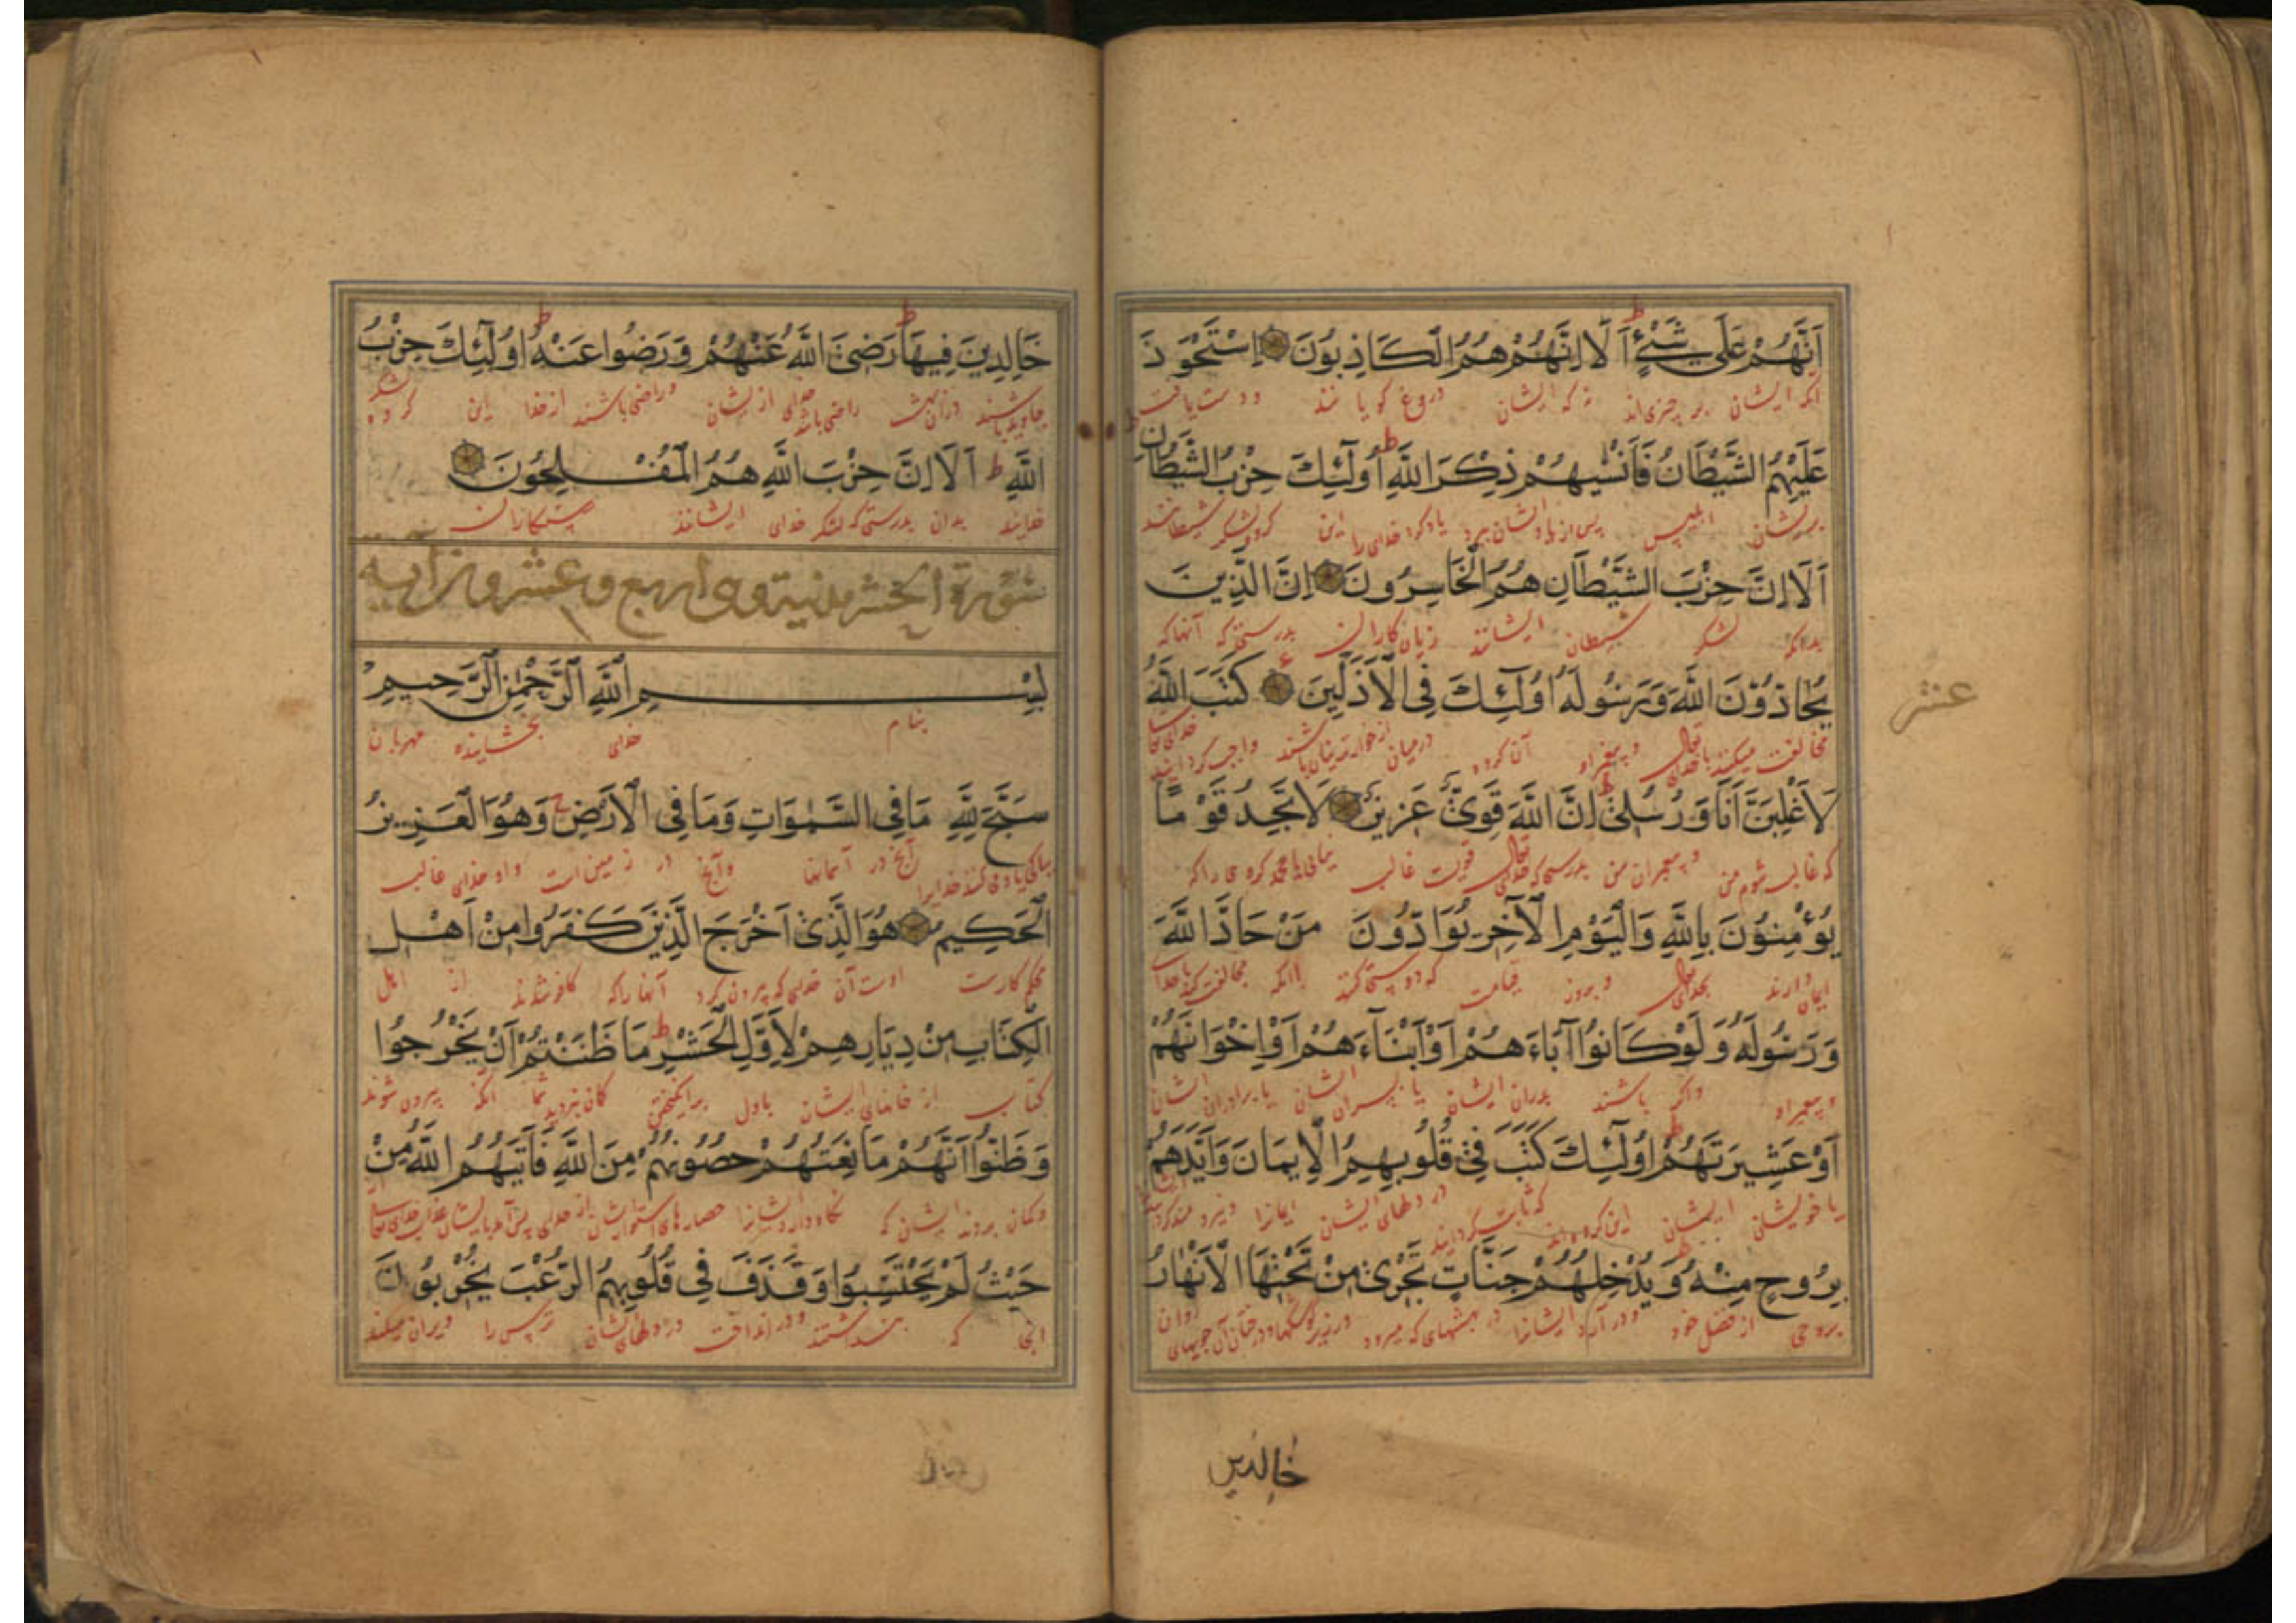 اَنَّهُمْ عَلَى شَيْءٍ ط اَلَا اِنَّهُمْ هُمُ الْكَاذِبُونَ اِسْتَحْوَذَ
انکه ایشان بر چیزی اند که ایشان دروغ گویانند ودست یافت
عَلَيْهِمُ الشَّيْطَانُ فَاَنْسٰيهُمْ ذِكْرَ اللَّهِ ط اُولٰٓئِكَ حِزْبُ الشَّيْطَانِ ط
بریشان ابلیس پس از یاد ایشان ببرد یاد کرد خدای را این گروه لشکر شیطانند
اَلَا اِنَّ حِزْبَ الشَّيْطَانِ هُمُ الْخَاسِرُونَ اِنَّ الَّذِينَ
بدانکه لشکر شیطان ایشانند زیان کاران بدرستی که آنها که
يُحَادُّوْنَ اللَّهَ وَرَسُولَهُ اُولٰٓئِكَ فِي الْاَذَلِّينَ ع كَتَبَ اللَّهُ
عشر
مخالفت میکنند با خدای تعالی وپیغمبر او آن گروه درمیان از خوارترینان باشند واجب گردانید خدای تعالی
لَاَغْلِبَنَّ اَنَا وَرُسُلِيْ ط اِنَّ اللَّهَ قَوِيٌّ عَزِيزٌ لَا تَجِدُ قَوْمًا
که غالب شوم من وپیغمبران من بدرستی که خدای تعالی قویست غالب نیابی یا محمد گروهی را که
يُؤْمِنُوْنَ بِاللَّهِ وَالْيَوْمِ الْاٰخِرِ يُوَادُّوْنَ مَنْ حَادَّ اللَّهَ
ایمان دارند بخدای تعالی وبروز قیامت که دوستی کنند باانکه مخالفت کند با خدا
وَرَسُولَهُ وَلَوْ كَانُوا اٰبَاءَهُمْ اَوْ اَبْنَآءَهُمْ اَوْ اِخْوَانَهُمْ
وپیغمبر او واگر باشند پدران ایشان یا پسران ایشان یا برادران ایشان
اَوْ عَشِيرَتَهُمْ ط اُولٰٓئِكَ كَتَبَ فِيْ قُلُوبِهِمُ الْاِيمَانَ وَاَيَّدَهُمْ
یا خویشان ایشان این گروه اند که ثابت گردانید در دلهای ایشان ایمانرا
بِرُوحٍ مِنْهُ وَيُدْخِلُهُمْ جَنَّاتٍ تَجْرِيْ مِنْ تَحْتِهَا الْاَنْهَارُ
بروحی از فضل خود ودر آرد ایشانرا در بهشتهای که میرود در زیر کوشکها ودرختان آن جویهای روان
خالدین
خَالِدِينَ فِيهَا ط رَضِيَ اللَّهُ عَنْهُمْ وَرَضُوا عَنْهُ ط اُولٰٓئِكَ حِزْبُ
جاوید باشند در آن بهشت راضی باشد خدای از ایشان وراضی باشند از خدا این گروه لشکر
اللَّهِ ط اَلَا اِنَّ حِزْبَ اللَّهِ هُمُ الْمُفْلِحُونَ
خدایند بدان بدرستی که لشکر خدای ایشانند رستگاران
سورة الحشر مدنية وهى اربع وعشرون آية
بِسْمِ اللَّهِ الرَّحْمٰنِ الرَّحِيمِ
بنام خدای بخشاینده مهربان
سَبَّحَ لِلَّهِ مَا فِي السَّمٰوَاتِ وَمَا فِي الْاَرْضِ ج وَهُوَ الْعَزِيزُ
بپاکی یاد می کند خدایرا آنچ در آسمانها وآنچ در زمین است واو خدای غالب
الْحَكِيمُ هُوَ الَّذِيْ اَخْرَجَ الَّذِيْنَ كَفَرُوا مِنْ اَهْلِ
محکم کارست اوست آن خدای که بیرون کرد آنها را که کافر شدند از اهل
الْكِتَابِ مِنْ دِيَارِهِمْ لِاَوَّلِ الْحَشْرِ ط مَا ظَنَنْتُمْ اَنْ يَخْرُجُوا
کتاب از خانهای ایشان باول برانگیختن گمان نبردید شما آنکه بیرون شوند
وَظَنُّوا اَنَّهُمْ مَانِعَتُهُمْ حُصُونُهُمْ مِنَ اللَّهِ فَاَتٰيهُمُ اللَّهُ مِنْ
وگمان بردند ایشان که نگاه دارد ایشانرا حصارهای استوار ایشان از خدای پس آمد بایشان عذاب خدای تعالی
حَيْثُ لَمْ يَحْتَسِبُوا وَقَذَفَ فِي قُلُوبِهِمُ الرُّعْبَ يُخْرِبُونَ
که نپنداشتند ودر انداخت در دلهای ایشان ترس را ویران میکنند